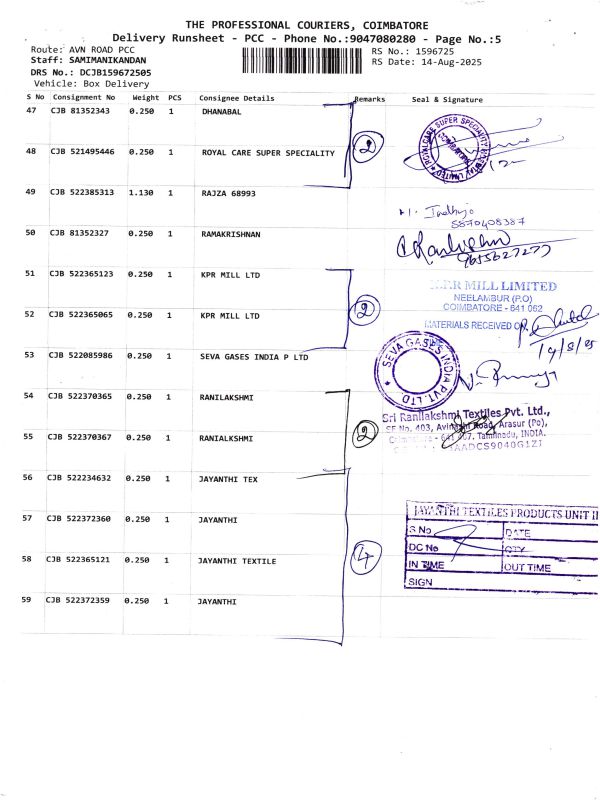 THE PROFESSIONAL COURIERS, COIMBATORE
Delivery Runsheet - PCC - Phone No.:9047080280 - Page No.:5
Route: AVN ROAD PCC
RS No.: 1596725
Staff: SAMIMANIKANDAN
RS Date: 14-Aug-2025
DRS No.: DCJB159672505
Vehicle: Box Delivery
S No Consignment No Weight PCS Consignee Details Remarks Seal & Signature
47 CJB 81352343 0.250 1 DHANABAL
2
ROYAL CARE SUPER SPECIALITY HOSPITAL LIMITED
COIMBATORE
48 CJB 521495446 0.250 1 ROYAL CARE SUPER SPECIALITY
49 CJB 522385313 1.130 1 RAJZA 68993
5870408387
50 CJB 81352327 0.250 1 RAMAKRISHNAN
9655627277
51 CJB 522365123 0.250 1 KPR MILL LTD
2
K.P.R MILL LIMITED
NEELAMBUR (P.O)
COIMBATORE - 641 062
52 CJB 522365065 0.250 1 KPR MILL LTD
MATERIALS RECEIVED ON
14/8/25
53 CJB 522085986 0.250 1 SEVA GASES INDIA P LTD
SEVA GASES INDIA PVT LTD
54 CJB 522370365 0.250 1 RANILAKSHMI
2
Sri Ranilakshmi Textiles Pvt. Ltd.,
SF No. 403, Avinashi Road, Arasur (Po),
Coimbatore - 641 407. Tamilnadu, INDIA.
55 CJB 522370367 0.250 1 RANIALKSHMI
56 CJB 522234632 0.250 1 JAYANTHI TEX
57 CJB 522372360 0.250 1 JAYANTHI
4
JAYANTHI TEXTILES PRODUCTS UNIT II
S No DATE
DC No QTY
IN TIME OUT TIME
SIGN
58 CJB 522365121 0.250 1 JAYANTHI TEXTILE
59 CJB 522372359 0.250 1 JAYANTHI